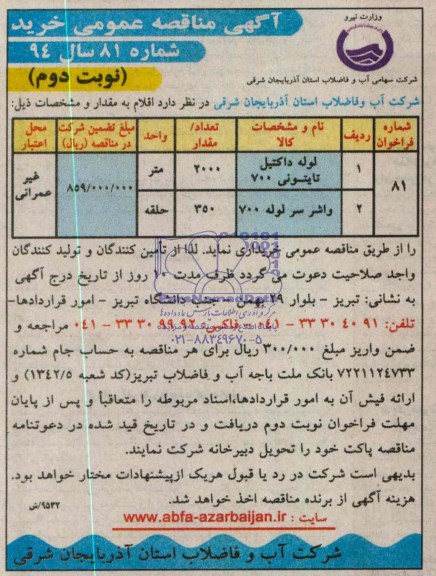 وزارت نیرو
شرکت سهامی آب و فاضلاب استان آذربایجان شرقی
آگهی مناقصه عمومی خرید
شماره ۸۱ سال ۹۴
(نوبت دوم)
شرکت آب وفاضلاب استان آذربایجان شرقی در نظر دارد اقلام به مقدار و مشخصات ذیل:
شماره فراخوان | ردیف | نام و مشخصات کالا | تعداد/مقدار | واحد | مبلغ تضمین شرکت در مناقصه (ریال) | محل اعتبار
۸۱ | ۱ | لوله داکتیل تایتونی ۷۰۰ | ۲۰۰۰ | متر | ۸۵۹/۰۰۰/۰۰۰ | غیر عمرانی
۲ | واشر سر لوله ۷۰۰ | ۳۵۰ | حلقه
را از طریق مناقصه عمومی خریداری نماید. لذا از تأمین کنندگان و تولید کنندگان
واجد صلاحیت دعوت می گردد ظرف مدت ۱۰ روز از تاریخ درج آگهی
به نشانی: تبریز - بلوار ۲۹ بهمن - جنب دانشگاه تبریز - امور قراردادها-
تلفن: ۹۱ ۴۰ ۳۰ ۳۳ - ۰۴۱ و فاکس: ۹۲ ۹۹ ۳۰ ۳۳ - ۰۴۱ مراجعه و
ضمن واریز مبلغ ۳۰۰/۰۰۰ ریال برای هر مناقصه به حساب جام شماره
۷۲۲۱۱۲۴۷۳۳ بانک ملت باجه آب و فاضلاب تبریز(کد شعبه ۱۳۴۲/۵) و
ارائه فیش آن به امور قراردادها،اسناد مربوطه را متعاقباً و پس از پایان
مهلت فراخوان نوبت دوم دریافت و در تاریخ قید شده در دعوتنامه
مناقصه پاکت خود را تحویل دبیرخانه شرکت نمایند.
بدیهی است شرکت در رد یا قبول هریک ازپیشنهادات مختار خواهد بود.
هزینه آگهی از برنده مناقصه اخذ خواهد شد.
۹۵۳۲/ش
سایت : www.abfa-azarbaijan.ir
شرکت آب و فاضلاب استان آذربایجان شرقی
۰۲۱-۸۸۳۴۹۶۷۰-۵